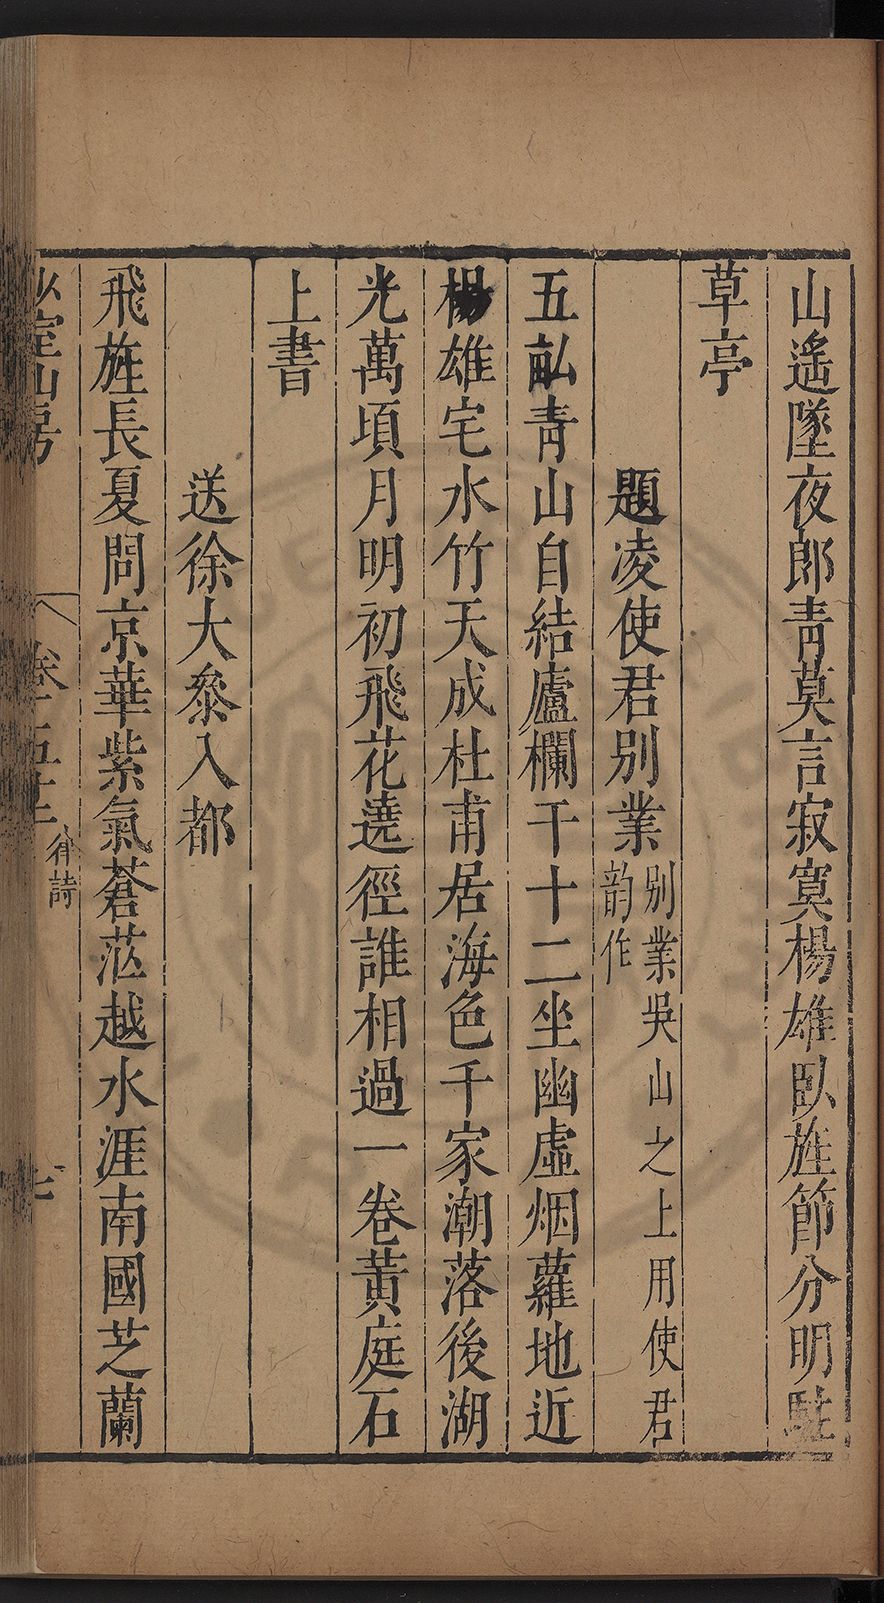 山遙墜夜郎青莫言寂寞楊雄臥旌節分明駐
草亭
題凌使君別業別業吳山之上用使君
韵作
五畝青山自結廬欄干十二坐幽虛烟蘿地近
楊雄宅水竹天成杜甫居海色千家潮落後湖
光萬頃月明初飛花遶徑誰相過一卷黃庭石
上書
送徐大叅入都
飛旌長夏問京華紫氣蒼茫越水涯南國芝蘭
室山房
卷五十
律詩
七